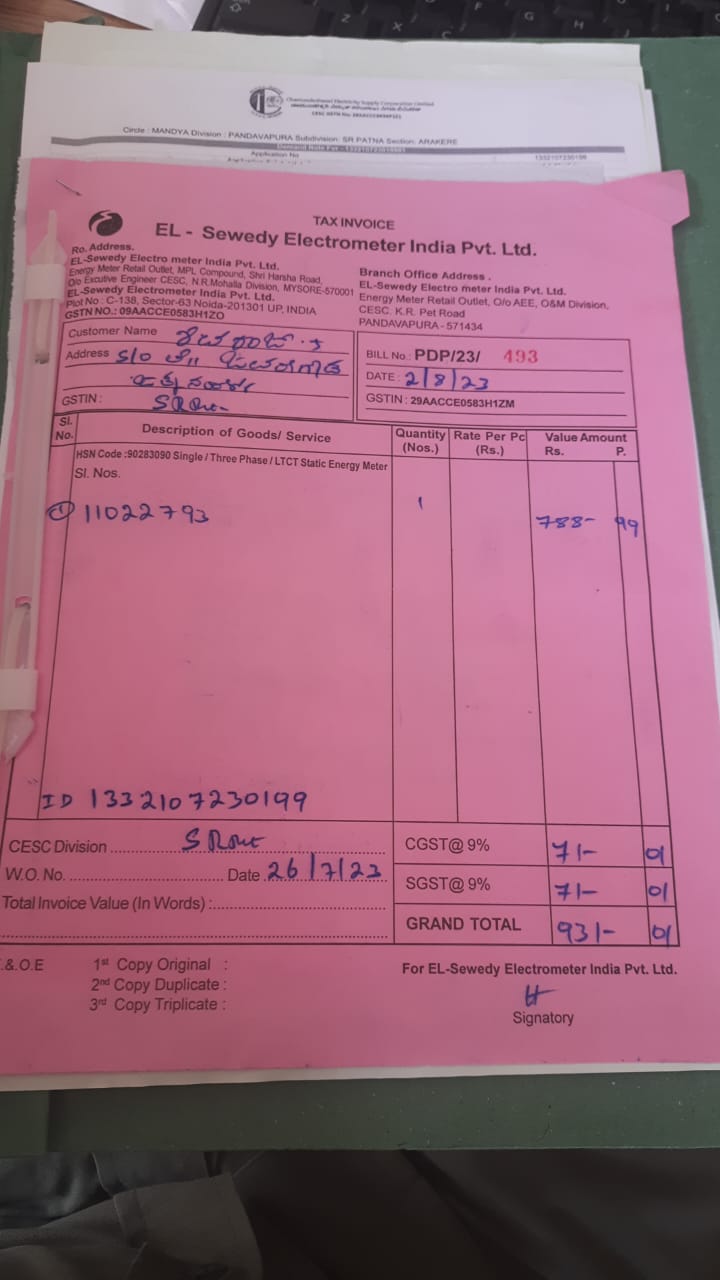 Circle : MANDYA Division : PANDAVAPURA Subdivision: SR PATNA Section: ARAKERE
Application No
TAX INVOICE
EL - Sewedy Electrometer India Pvt. Ltd.
Ro. Address.
EL-Sewedy Electro meter India Pvt. Ltd.
Energy Meter Retail Outlet, MPL Compound, Shri Harsha Road,
O/o Excutive Engineer CESC, N.R.Mohalla Division, MYSORE-570001
EL-Sewedy Electrometer India Pvt. Ltd.
Plot No : C-138, Sector-63 Noida-201301 UP, INDIA
GSTN NO.: 09AACCE0583H1ZO
Branch Office Address .
EL-Sewedy Electro meter India Pvt. Ltd.
Energy Meter Retail Outlet, O/o AEE, O&M Division,
CESC. K.R. Pet Road
PANDAVAPURA - 571434
Customer Name
Address S/o
GSTIN :
BILL No.: PDP/23/ 493
DATE : 2/8/23
GSTIN : 29AACCE0583H1ZM
Sl. No. Description of Goods/ Service Quantity (Nos.) Rate Per Pc (Rs.) Value Amount Rs. P.
HSN Code :90283090 Single / Three Phase / LTCT Static Energy Meter
Sl. Nos.
① 11022793 1 788- 99
ID 1332107230199
CESC Division
CGST@ 9% 71- 01
W.O. No. Date 26/7/23
SGST@ 9% 71- 01
Total Invoice Value (In Words) :
GRAND TOTAL 931- 01
.&.O.E 1st Copy Original :
2nd Copy Duplicate :
3rd Copy Triplicate :
For EL-Sewedy Electrometer India Pvt. Ltd.
Signatory